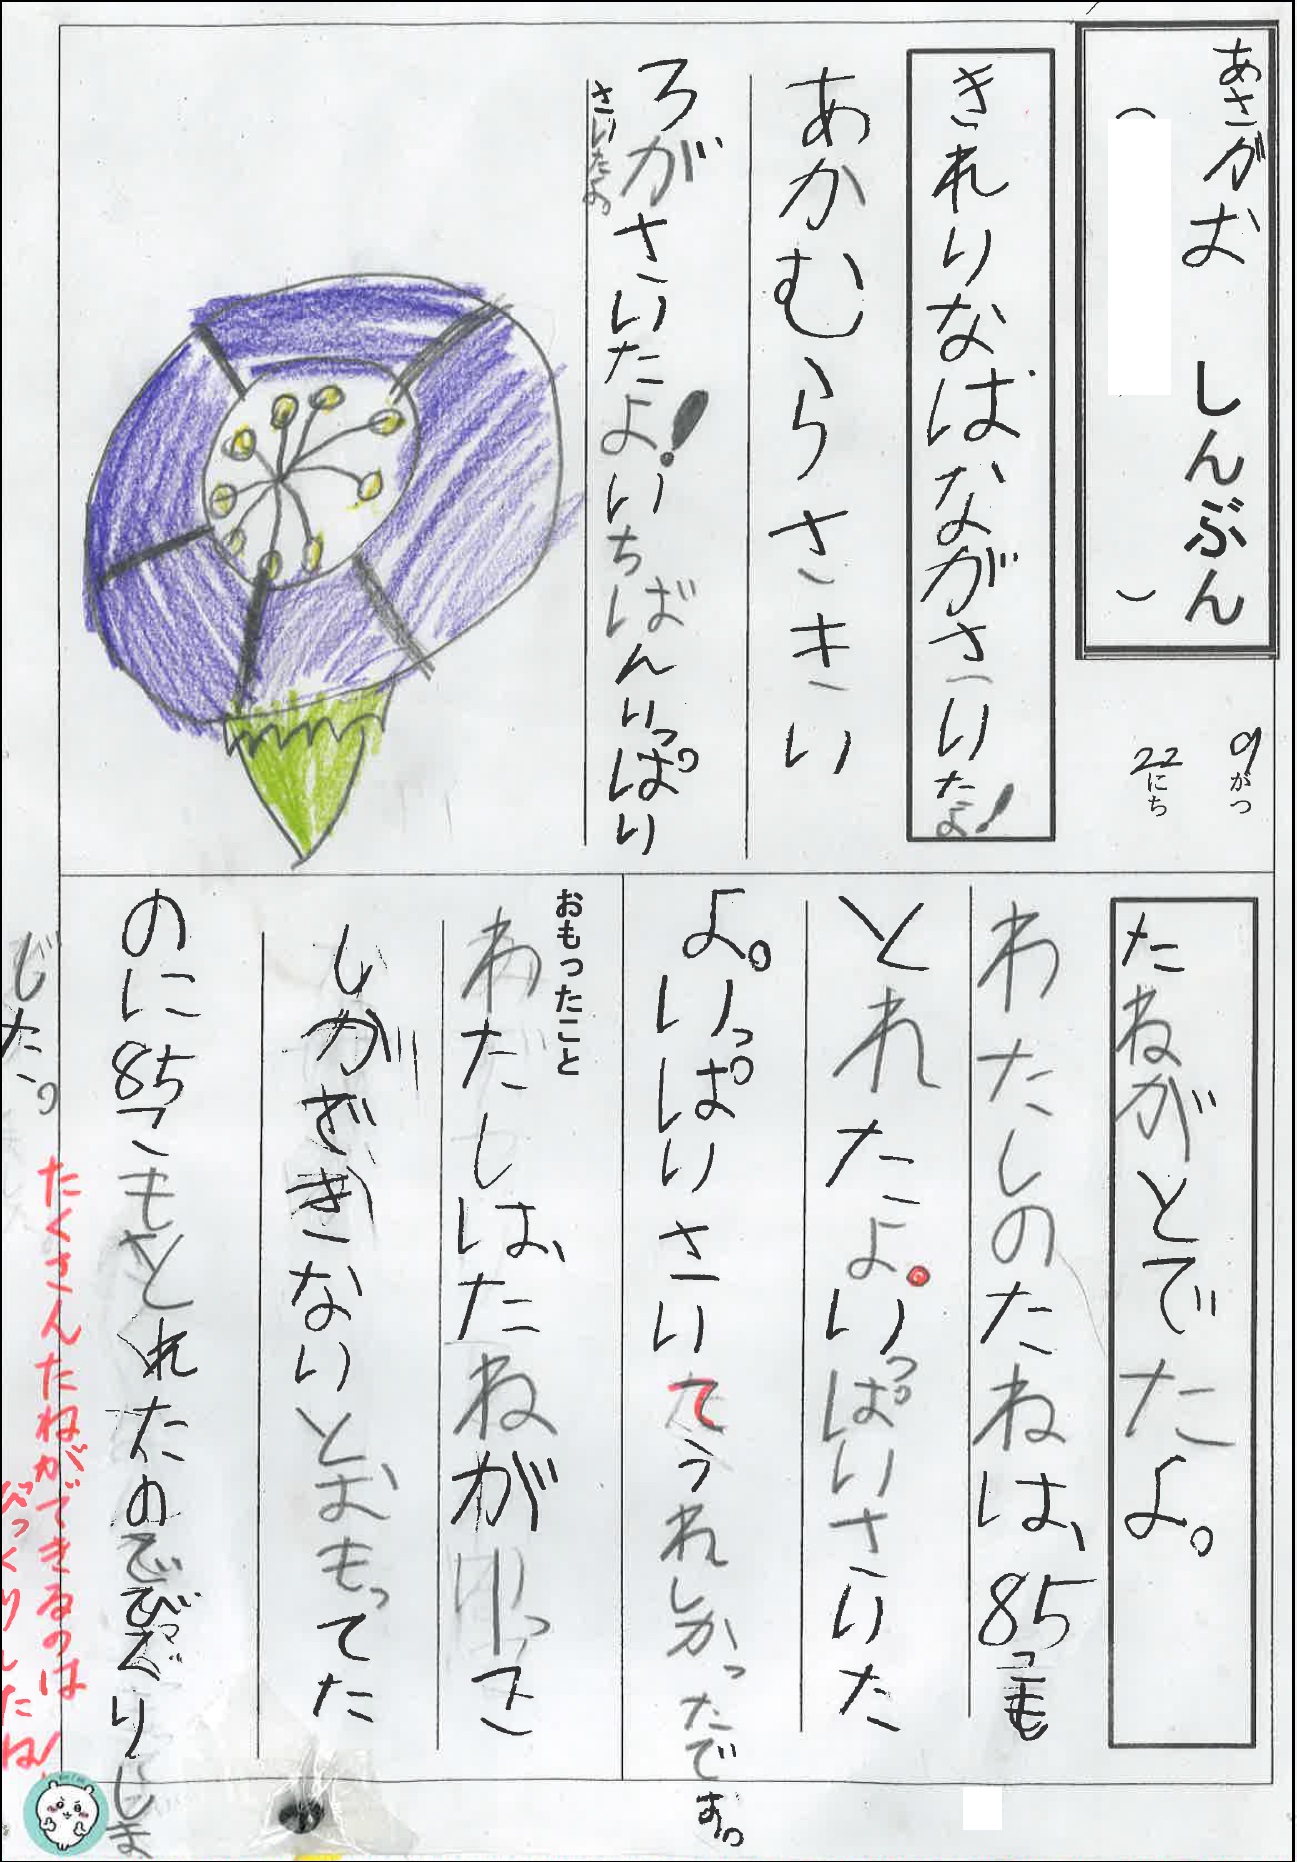 あさがお しんぶん
( )
9がつ
22にち
きれりなばながさりたよ!
あかむらさきい
ろがさいたよ!いちばんいっぱり
さいたよ。
たねがとでたよ。
わたしのたねは、85こも
とれたよ。いっぱいさいた
よ。いっぱいさいてうれしかったです。
おもったこと
わたしは、たねが1こ
しかできないとおもってた
のに85こもとれたのでびっくりしま
した。
たくさんたねができるのは
びっくりしたね!